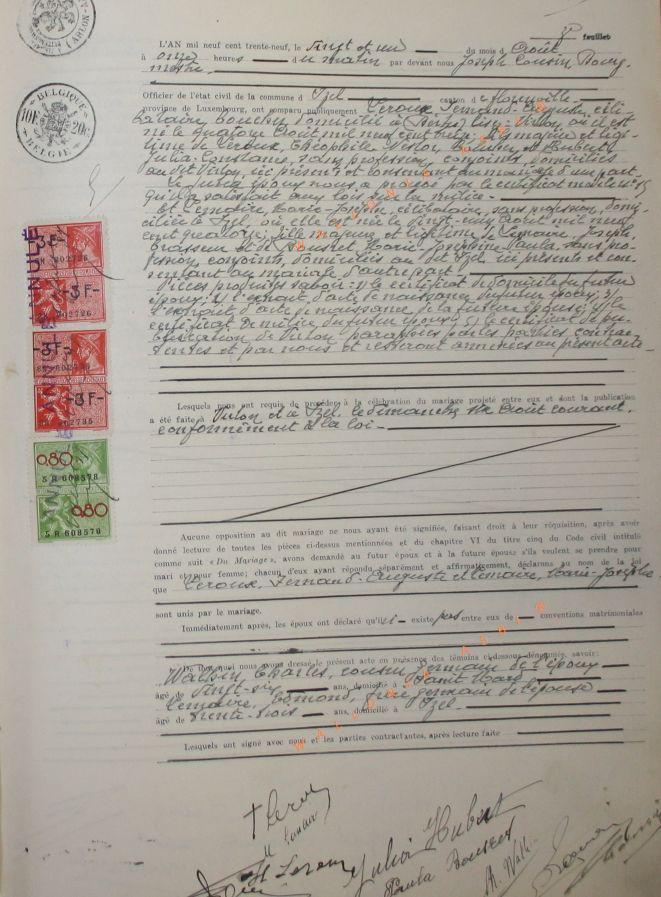 feuillet
L'AN mil neuf cent trente-neuf, le Vingt et un du mois d'Août
à onze heures du matin par devant nous Joseph Cousin, Bourg-
mestre,
Officier de l'état civil de la commune d'Izel canton de Florenville
province de Luxembourg, ont comparu publiquement Leroux, Fernand-Auguste, céli-
bataire, boucher, domicilié à Virton, où il est
né le quatorze Août mil neuf cent treize, fils majeur et légi-
time de Leroux, Théophile Nestor, boucher, et Hubert
Julia-Constance, sans profession, conjoints, domiciliés
au dit Virton, ici présents et consentant au mariage d'une part.
Le futur époux nous a prouvé par le certificat modèle
qu'il a satisfait aux lois sur la milice.
Et Lemaire, Marie-Josèphe, célibataire, sans profession, domi-
ciliée à Izel, où elle est née le vingt-cinq Août mil neuf
cent quatorze, fille majeure et légitime de Lemaire, Joseph,
brasseur et de Bousret Marie Joséphine Paula, sans pro-
fession, conjoints, domiciliés au dit Izel ici présents et con-
sentant au mariage d'autre part.
Pièces produites savoir: 1) le certificat de domicile du futur
époux; 2) l'extrait d'acte de naissance du futur époux; 3)
l'extrait d'acte de naissance de la future épouse; 4) le
certificat de milice du futur époux; 5) le certificat de pu-
blication de Virton paraphées par les parties contrac-
tantes et par nous et resteront annexées au présent acte.
Lesquels nous ont requis de procéder à la célébration du mariage projeté entre eux et dont la publication
a été faite à Virton et à Izel, le dimanche six Août courant,
conformément à la loi
Aucune opposition au dit mariage ne nous ayant été signifiée, faisant droit à leur réquisition, après avoir
donné lecture de toutes les pièces ci-dessus mentionnées et du chapitre VI du titre cinq du Code civil intitulé
comme suit « Du Mariage », avons demandé au futur époux et à la future épouse s'ils veulent se prendre pour
mari et pour femme; chacun d'eux ayant répondu séparément et affirmativement, déclarons au nom de la loi
que Leroux, Fernand-Auguste et Lemaire, Marie-Josèphe
sont unis par le mariage.
Immédiatement après, les époux ont déclaré qu'il existe pas entre eux de conventions matrimoniales
De tout quel nous avons dressé le présent acte en présence des témoins ci-dessous dénommés, savoir:
Charles, cousin germain de l'époux
âgé de vingt-six ans, domicilié à Saint Mard
Lemaire, Edmond, frère germain de l'épouse
âgé de trente-trois ans, domicilié à Izel
Lesquels ont signé avec nous et les parties contractantes, après lecture faite
BELGIQUE
10F 20c
BELGIE
ANNULÉ
3F
3F
3F
3F
0,80
SR 608578
0,80
SR 608578
Leroux
Lemaire
Leroux
Julia Hubert
Paula Bousret